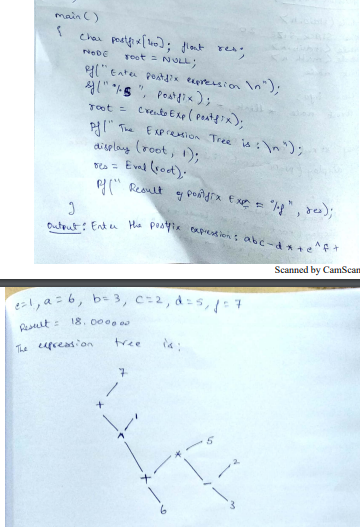 main()
{
char postfix[40]; float res;
NODE root = NULL;
pf("Enter postfix expression \n");
sf("%s", postfix);
root = createExp(postfix);
pf("The Expression Tree is :\n");
display(root, 1);
res = Eval(root);
pf("Result of postfix Expn = %f", res);
}
Output: Enter the postfix expression: abc-d*+e^f+
Scanned by CamScan
e=1, a=6, b=3, c=2, d=5, f=7
Result = 18.000000
The expression tree is:
7
+
1
^
5
*
2
+
-
6
3